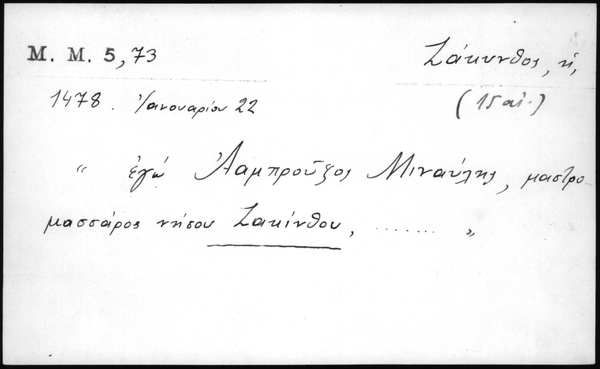 M. M. 5,73
Ζάκυνθος, ἡ,
1478. Ἰανουαρίου 22
(15 αἰ.)
“ ἐγὼ Λαμπροῦζος Μιναύλης, μαστρο
μασσάρος νήσου Ζακίνθου, ....... „